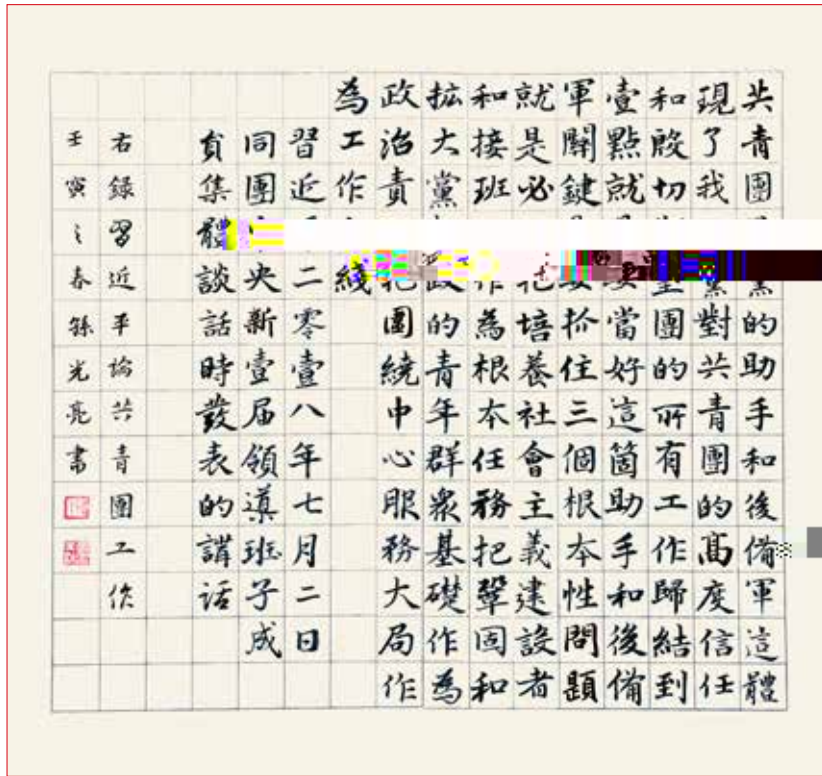 共青團的助手和後備軍這體
現了我黨對共青團的高度信任
和殷切望團的所有工作歸結到
壹點就要當好這箇助手和後備
軍關鍵要抓住三個根本性問題
就是必把培養社會主義建設者
和接班作為根本任務把鞏固和
拡大黨政的青年群衆基礎作為
政治責把圍繞中心服務大局作
為工作綫
習近二零壹八年七月二日
同團央新壹屆領導班子成
員集體談話時發表的講話
右録習近平論共青團工作
壬寅之春孫光亮書